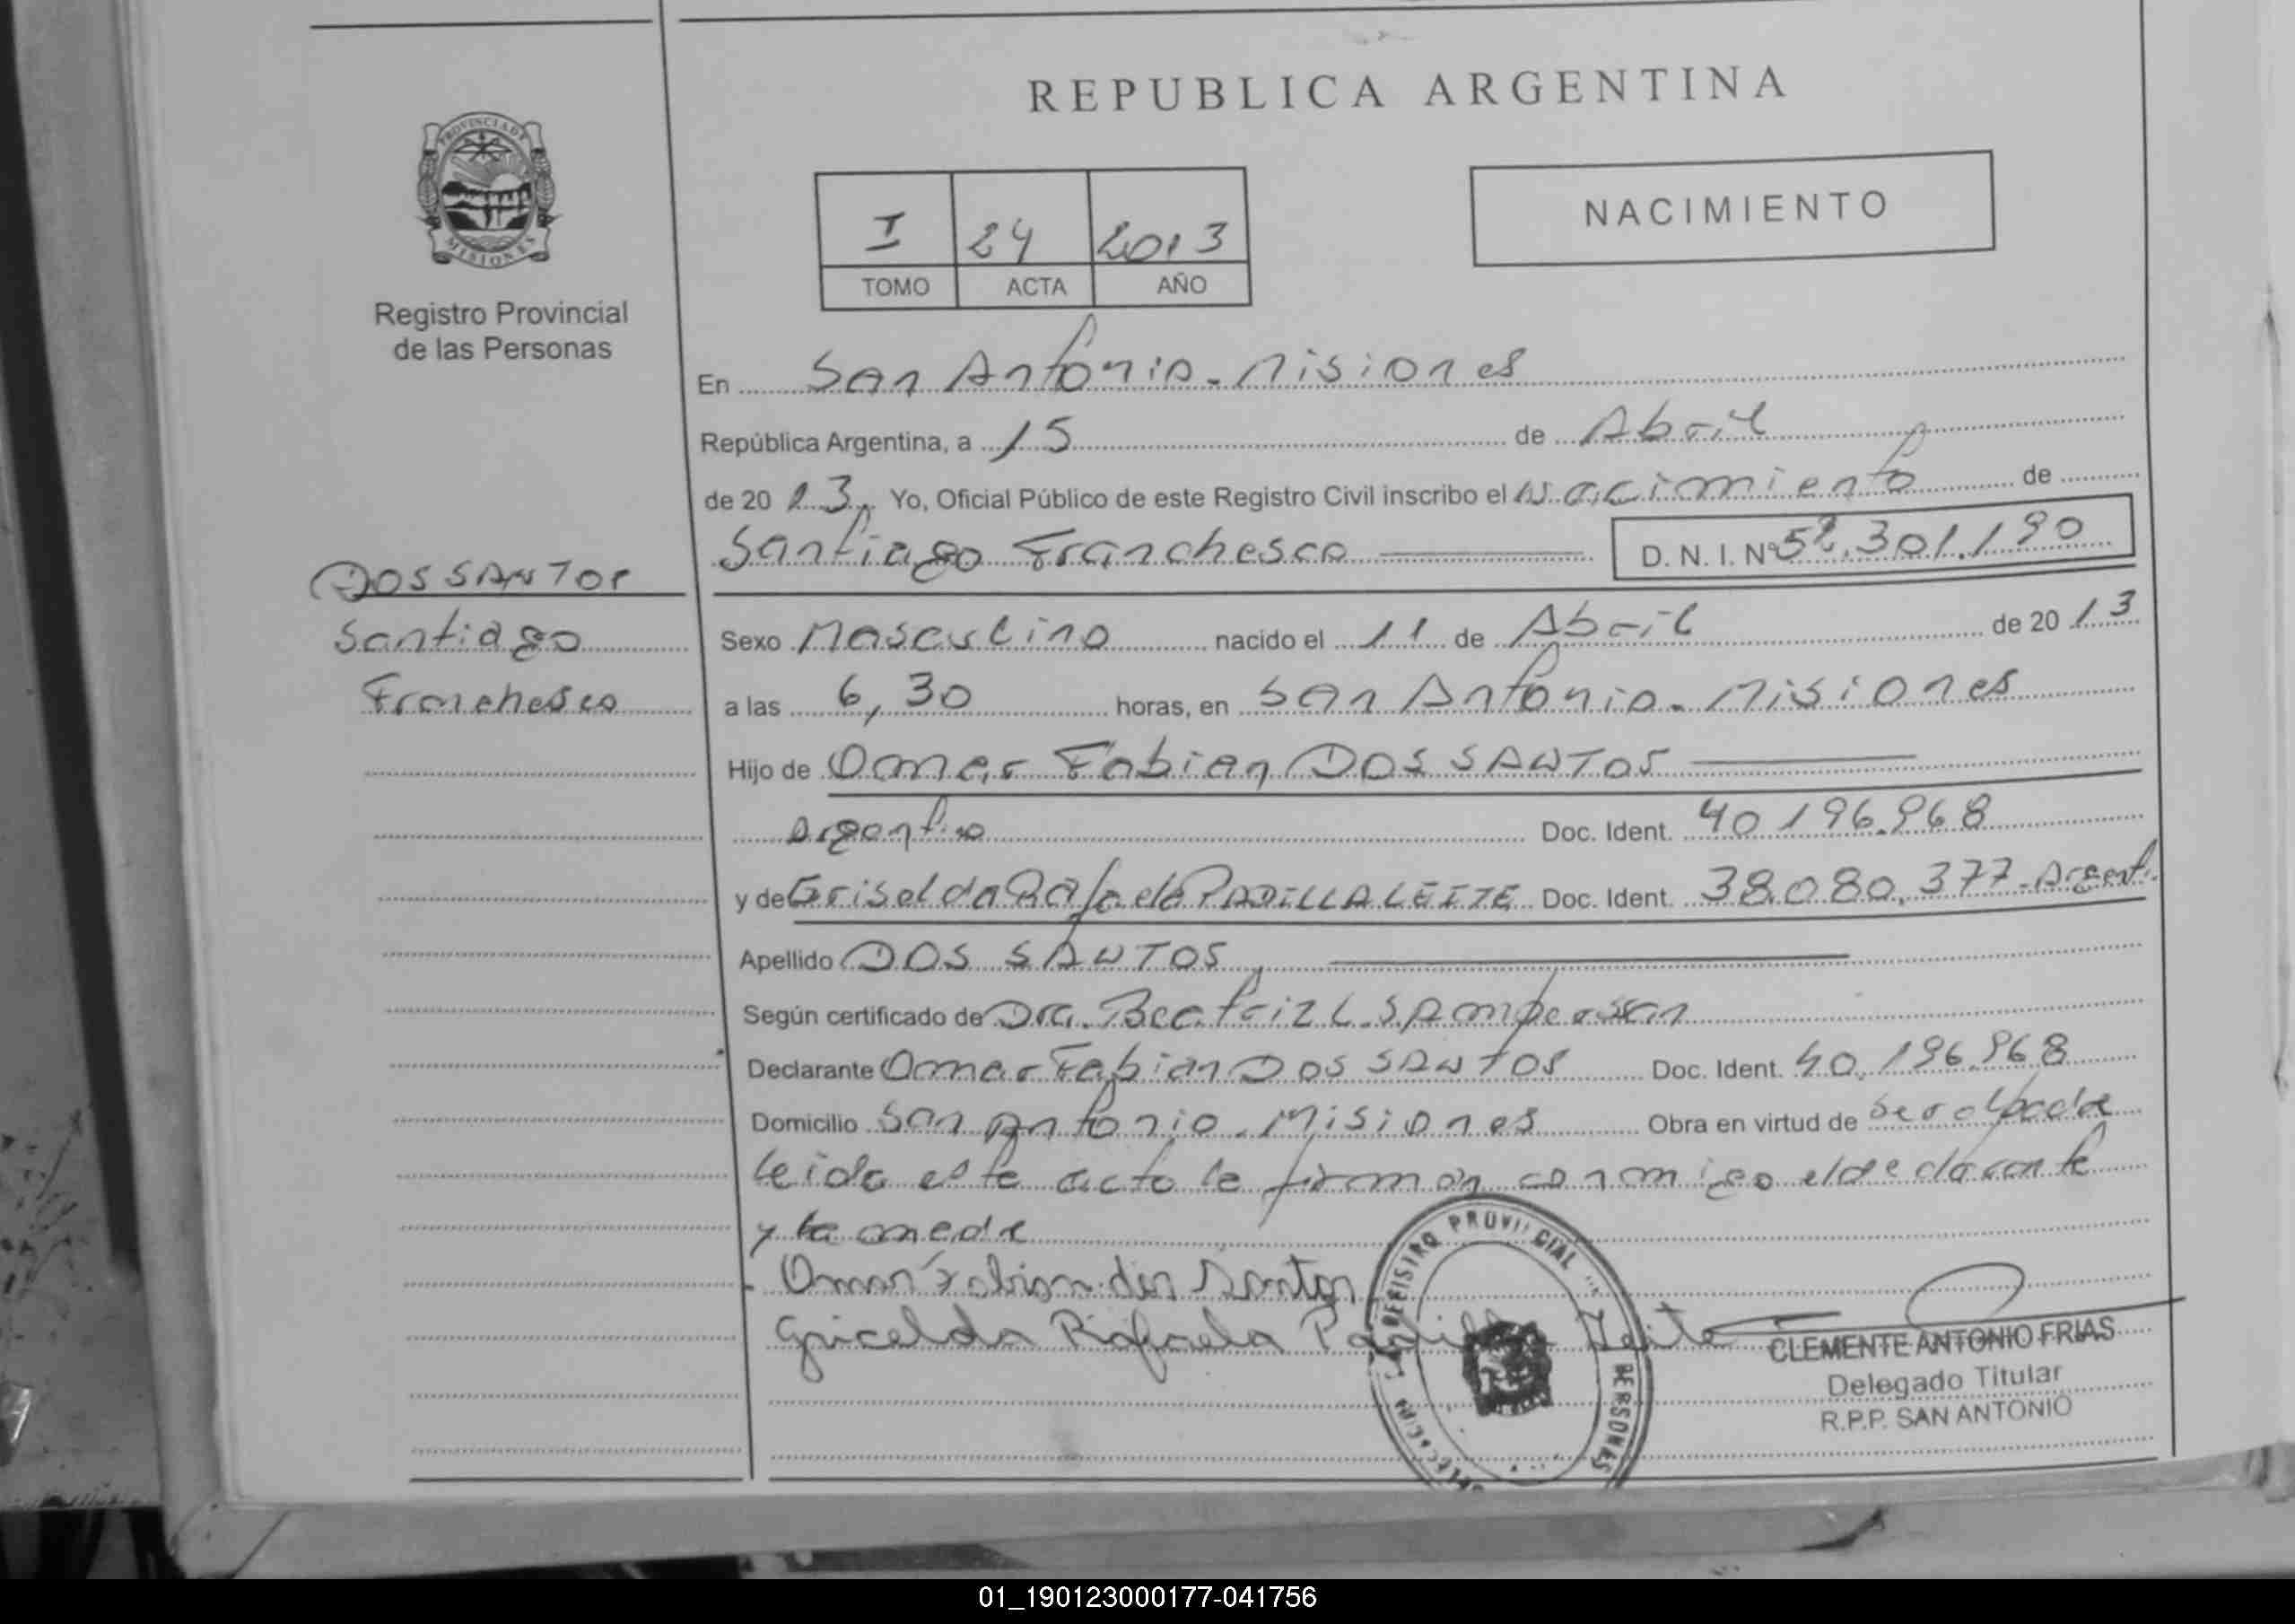 REPUBLICA ARGENTINA
PROVINCIA DE
MISIONES
Registro Provincial
de las Personas
I 24 2013
TOMO ACTA AÑO
NACIMIENTO
En San Antonio - Misiones
República Argentina, a 15 de Abril
de 20 13 Yo, Oficial Público de este Registro Civil inscribo el Nacimiento de
Santiago Franchesco D. N. I. Nº 52.301.190
DOS SANTOS
Santiago
Franchesco
Sexo Masculino nacido el 11 de Abril de 20 13
a las 6,30 horas, en San Antonio - Misiones
Hijo de Omar Fabian DOS SANTOS
Argentino Doc. Ident. 40.196.968
y de Griselda Rafaela PADILLA LEITE Doc. Ident. 38.080.377 - Argent.
Apellido DOS SANTOS
Según certificado de Dra. Beatriz L.
Declarante Omar Fabian DOS SANTOS Doc. Ident. 40.196.968
Domicilio San Antonio - Misiones Obra en virtud de
leida este acto la firman conmigo el declarante
y la madre
Omar Fabian dos Santos
Gricelda Rafaela Padilla Leite
REGISTRO PROVINCIAL DE LAS PERSONAS
CLEMENTE ANTONIO FRIAS
Delegado Titular
R.P.P. SAN ANTONIO
01_190123000177-041756